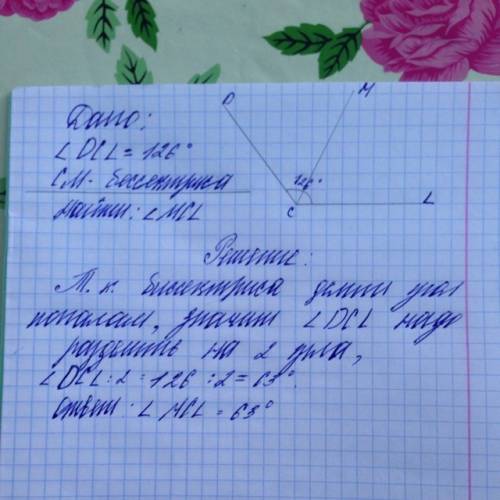 D
M
Дано:
∠DCL = 126°
CM - биссектриса
Найти: ∠MCL
126°
C
L
Решение:
Т. к. биссектриса делит угол
пополам, значит ∠DCL надо
разделить на 2 угла,
∠DCL : 2 = 126 : 2 = 63°.
Ответ: ∠MCL = 63°